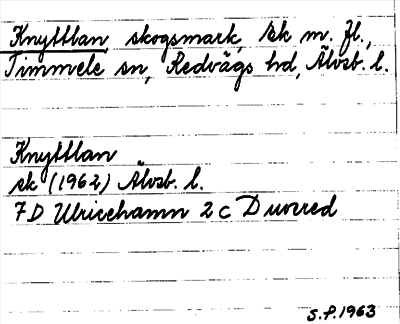 Knyttlan, skogsmark, sk m. fl.,
Timmele sn, Redvägs hd, Älvsb. l.
Knyttlan
sk (1962) Älvsb. l.
7D Ulricehamn 2c Duvred
S.P. 1963